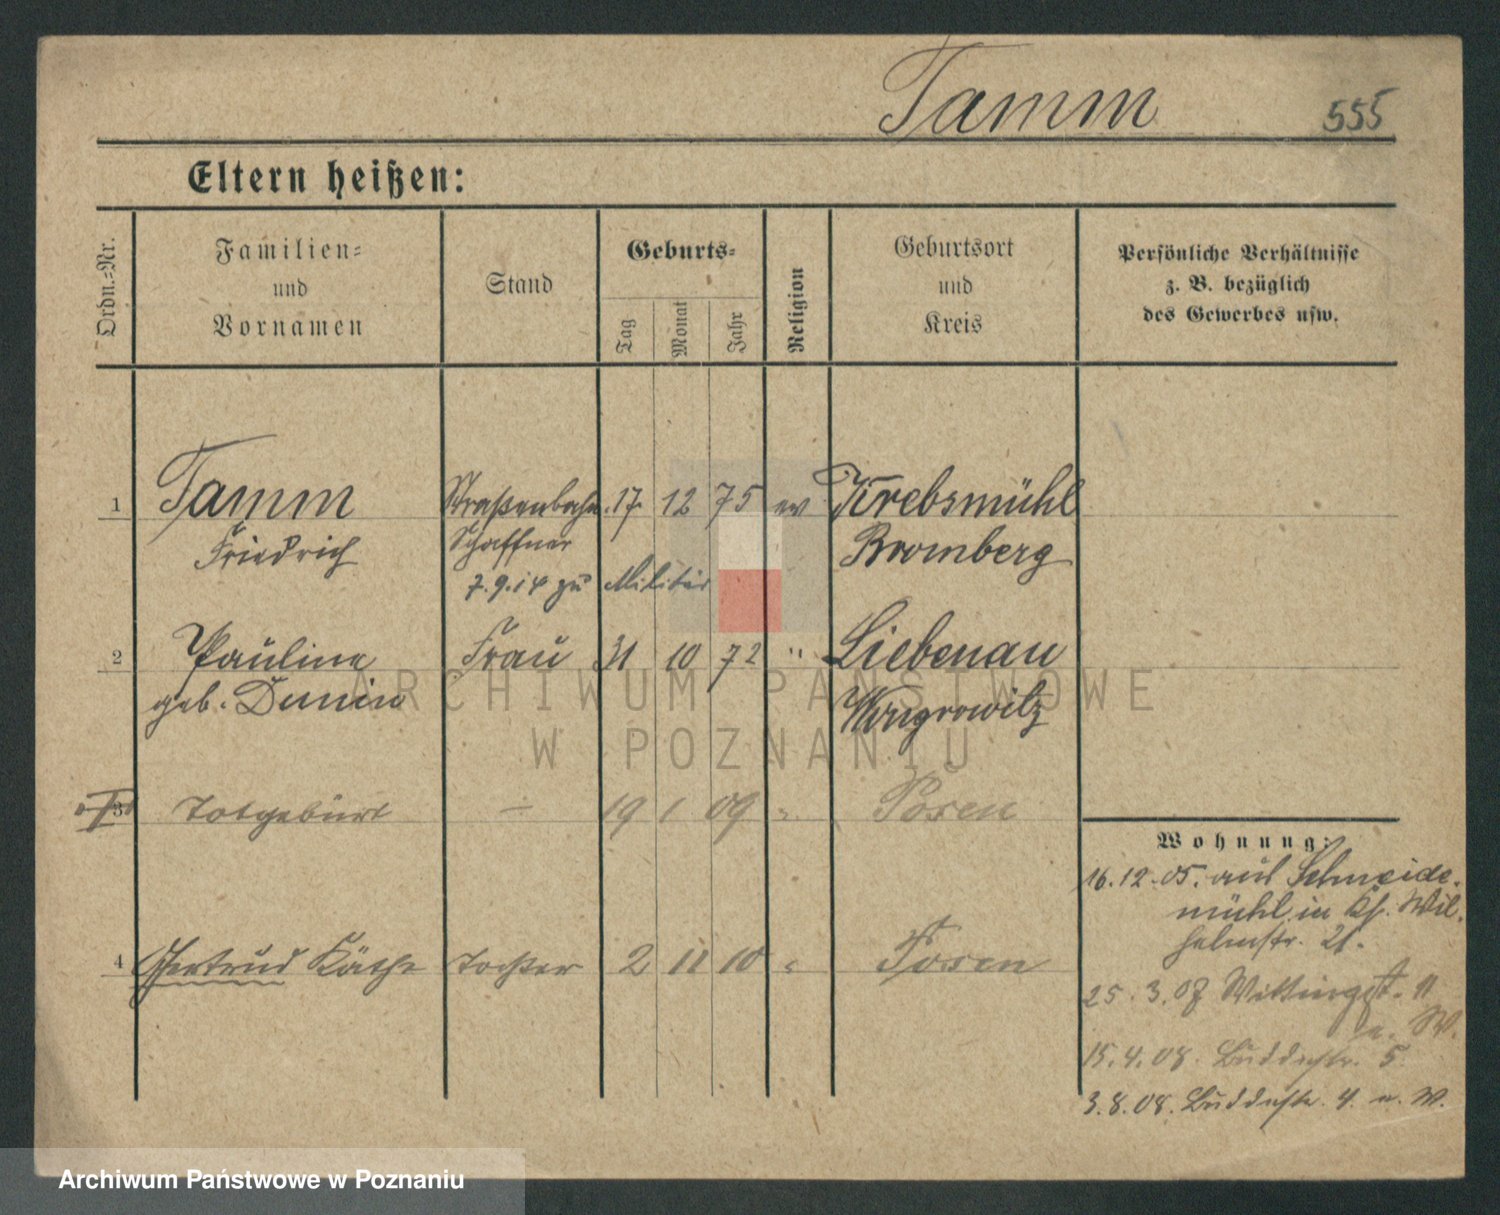 Tamm 555
Eltern heißen:
Ordn.-Nr.
Familien-
und
Vornamen
Stand
Geburts-
Tag
Monat
Jahr
Religion
Geburtsort
und
Kreis
Persönliche Verhältnisse
z. B. bezüglich
des Gewerbes usw.
1 Tamm Straßenbahn. 17. 12 75 ev Krebsmühl
Friedrich Schaffner Bromberg
7.9.14 zu Militär
2 Pauline Frau 31 10 72 " Liebenau
geb. Wongrowitz
3 Totgeburt — 19 1 09 " Posen
4 Gertrud Käthe Tochter 2 11 10 " Posen
Wohnung:
16.12.05. aus Schneide-
mühl in Kf. Wil-
helmstr. 21.
25.3.07 Wittingst. 11
n. W.
15.4.08. Buddestr. 5
3.8.08. Buddestr. 4. n. W.
ARCHIWUM PAŃSTWOWE
W POZNANIU
Archiwum Państwowe w Poznaniu